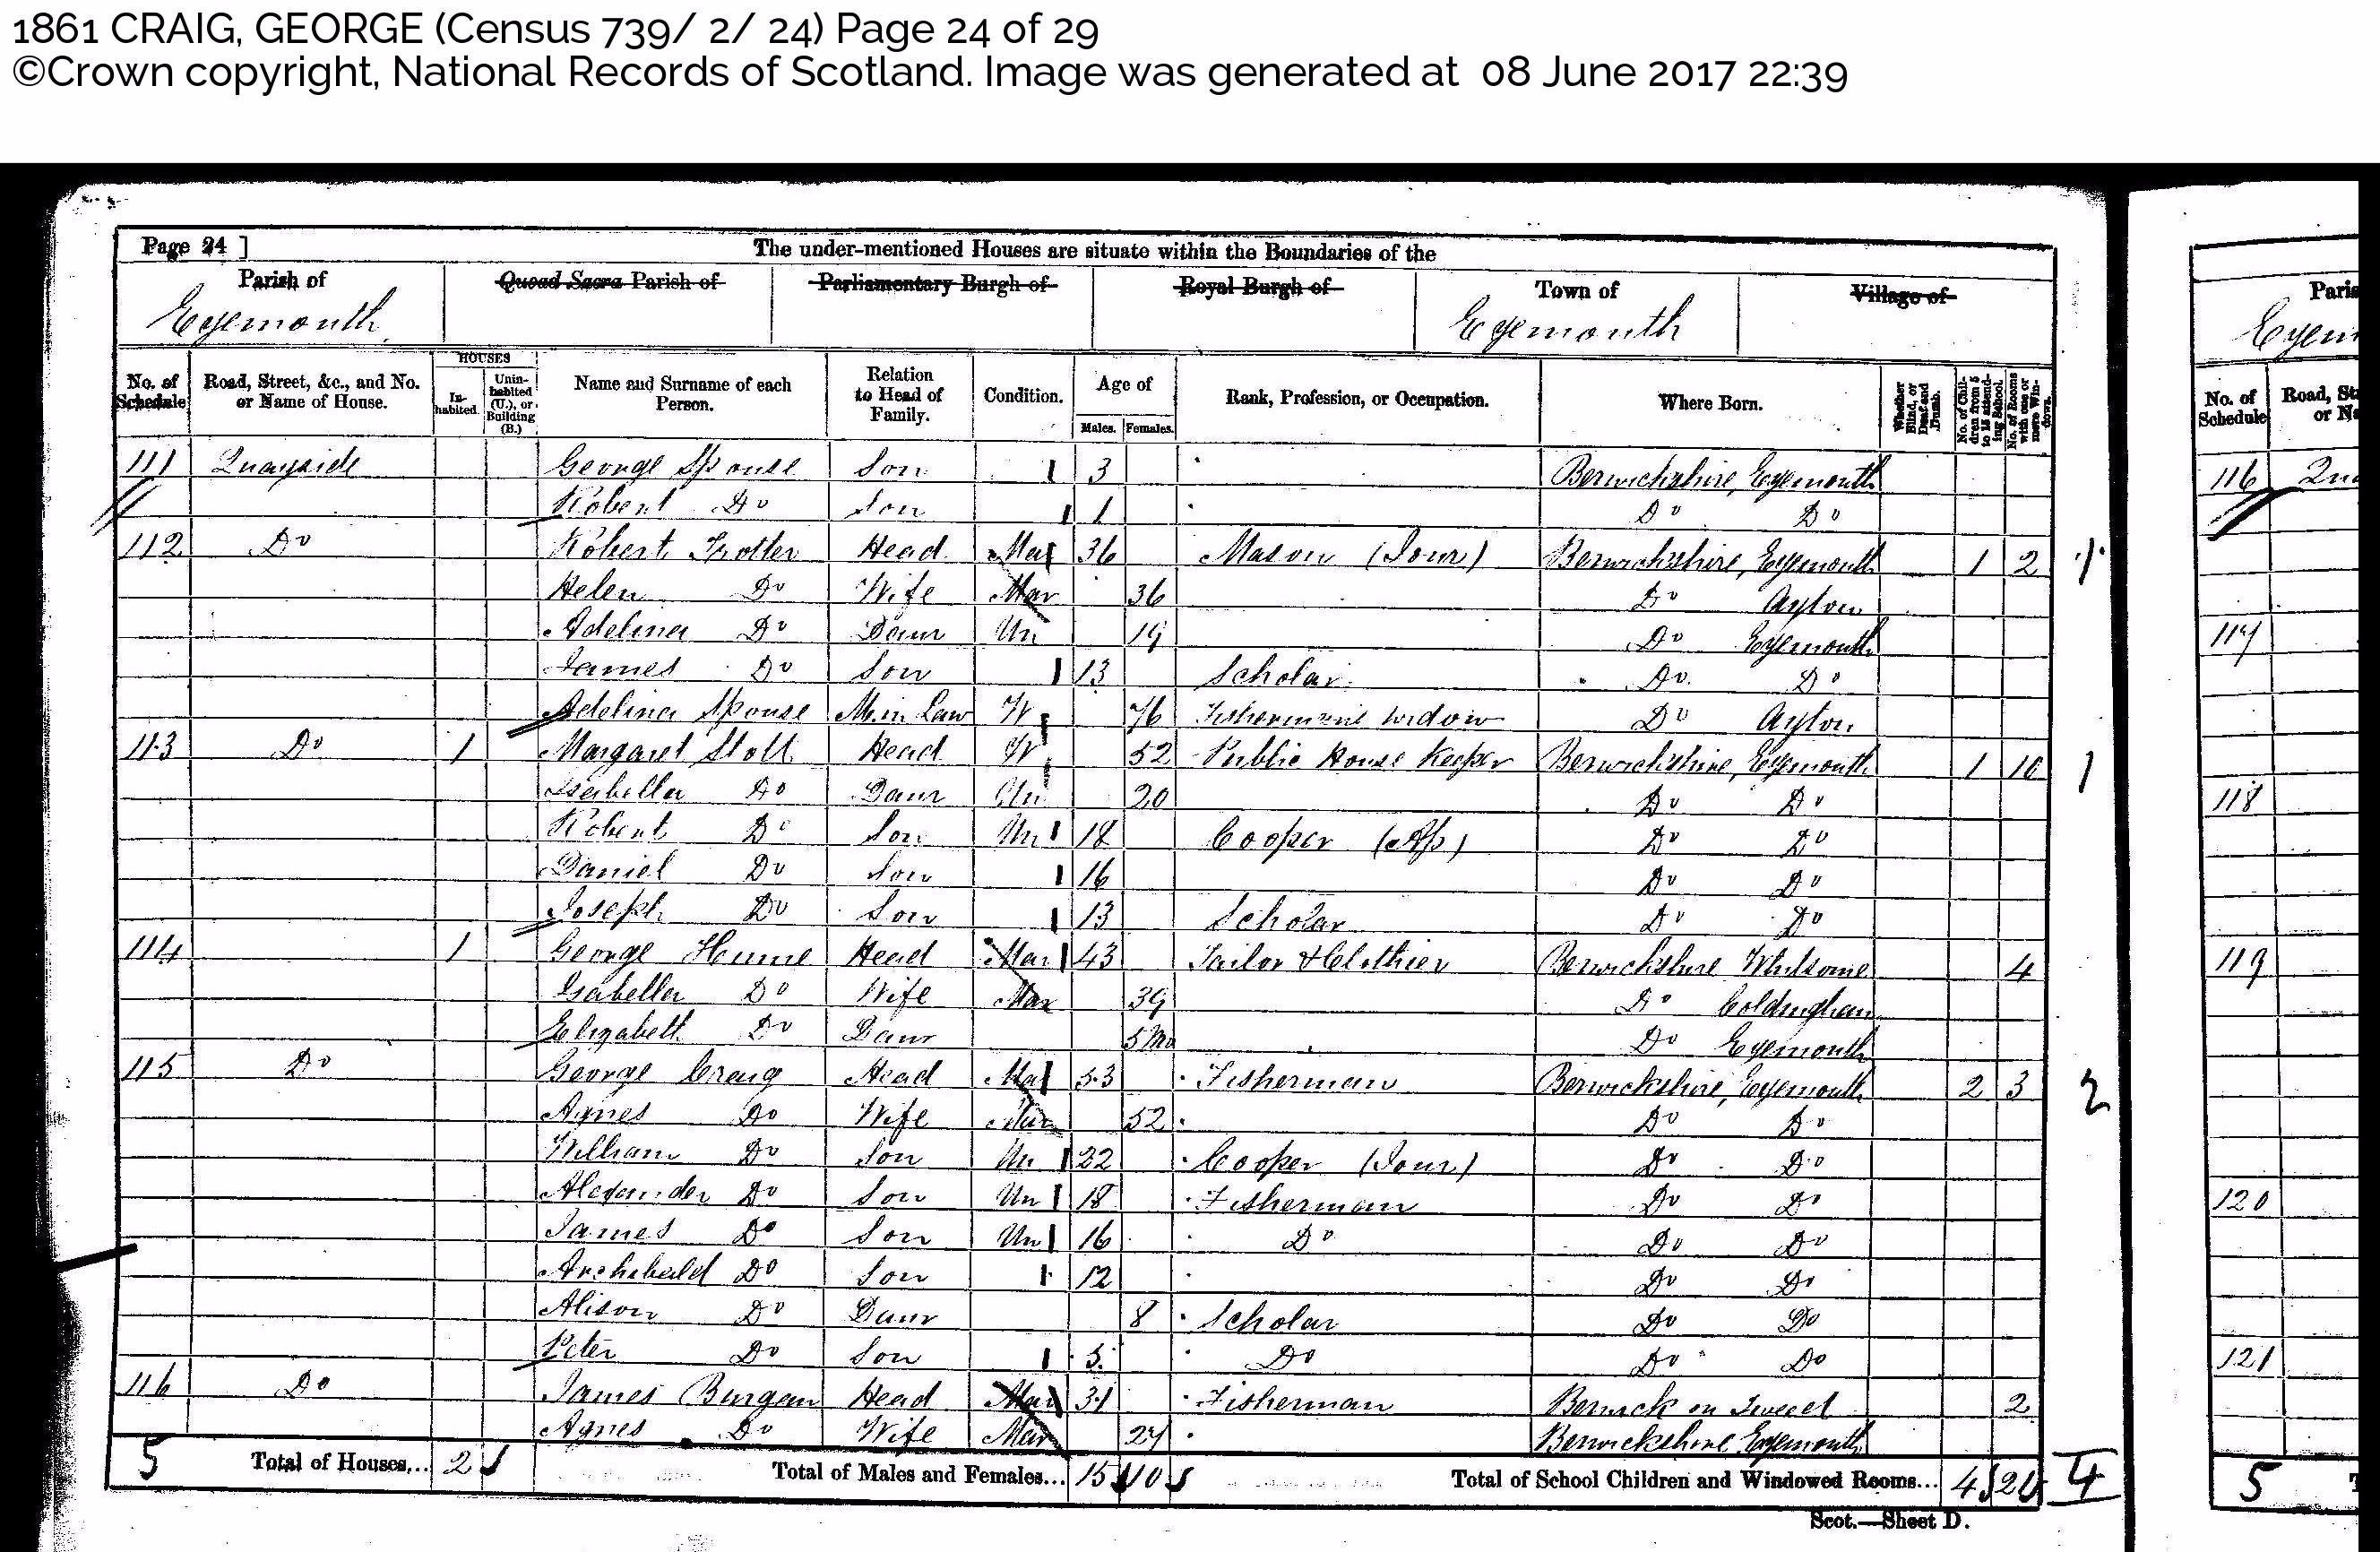 1861 CRAIG, GEORGE (Census 739/ 2/ 24) Page 24 of 29
©Crown copyright, National Records of Scotland. Image was generated at 08 June 2017 22:39
Page 24 ]
The under-mentioned Houses are situate within the Boundaries of the
Parish of Quoad Sacra Parish of Parliamentary Burgh of Royal Burgh of Town of Village of
Eyemouth Eyemouth
No. of Schedule Road, Street, &c., and No. or Name of House. HOUSES Inhabited. Uninhabited (U.), or Building (B.) Name and Surname of each Person. Relation to Head of Family. Condition. Age of Males. Females. Rank, Profession, or Occupation. Where Born. Whether Blind, or Deaf and Dumb. No. of Children from 5 to 15 attending School. No. of Rooms with one or more Windows.
111 Quayside George Spouse Son 3 Berwickshire, Eyemouth
Robert Do Son 1 Do Do
112 Do Robert Trotter Head Mar 36 Mason (Jour) Berwickshire, Eyemouth 1 2 1
Helen Do Wife Mar 36 Do Ayton
Adelina Do Daur Un 19 Do Eyemouth
James Do Son 13 Scholar Do Do
Adelina Spouse M. in Law W 76 Fisherman's widow Do Ayton
113 Do 1 Margaret Stott Head W 52 Public House Keeper Berwickshire, Eyemouth 1 10 1
Isabella Do Daur Un 20 Do Do
Robert Do Son Un 18 Cooper (Ap) Do Do
Daniel Do Son 16 Do Do
Joseph Do Son 13 Scholar Do Do
114 1 George Hume Head Mar 43 Tailor & Clothier Berwickshire Whitsome 4
Isabella Do Wife Mar 39 Do Coldingham
Elizabeth Do Daur 5 Mo Do Eyemouth
115 Do George Craig Head Mar 53 Fisherman Berwickshire, Eyemouth 2 3 2
Agnes Do Wife Mar 52 Do Do
William Do Son Un 22 Cooper (Jour) Do Do
Alexander Do Son Un 18 Fisherman Do Do
James Do Son Un 16 Do Do Do
Archibald Do Son 12 Do Do
Alison Do Daur 8 Scholar Do Do
Peter Do Son 5 Do Do Do
116 Do James Burgon Head Mar 31 Fisherman Berwick on Tweed 2
Agnes Do Wife Mar 27 Berwickshire Eyemouth
5 Total of Houses... 2 Total of Males and Females... 15 10 Total of School Children and Windowed Rooms... 4 21 4
Scot.—Sheet D.
Paris
Eyem
No. of Schedule Road, St or N
116 Qua
117
118
119
120
121
5 T